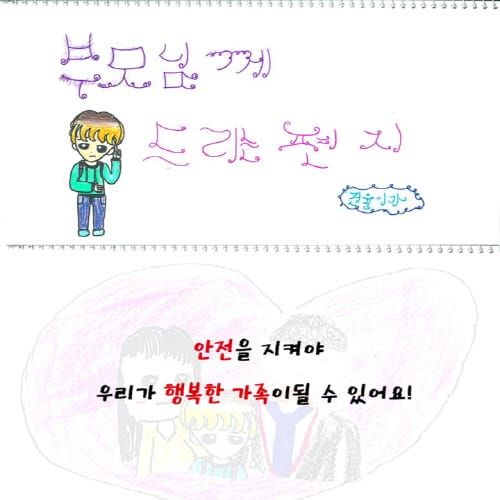 부모님께
드리는 편지
안전을 지켜야
우리가 행복한 가족이될 수 있어요!